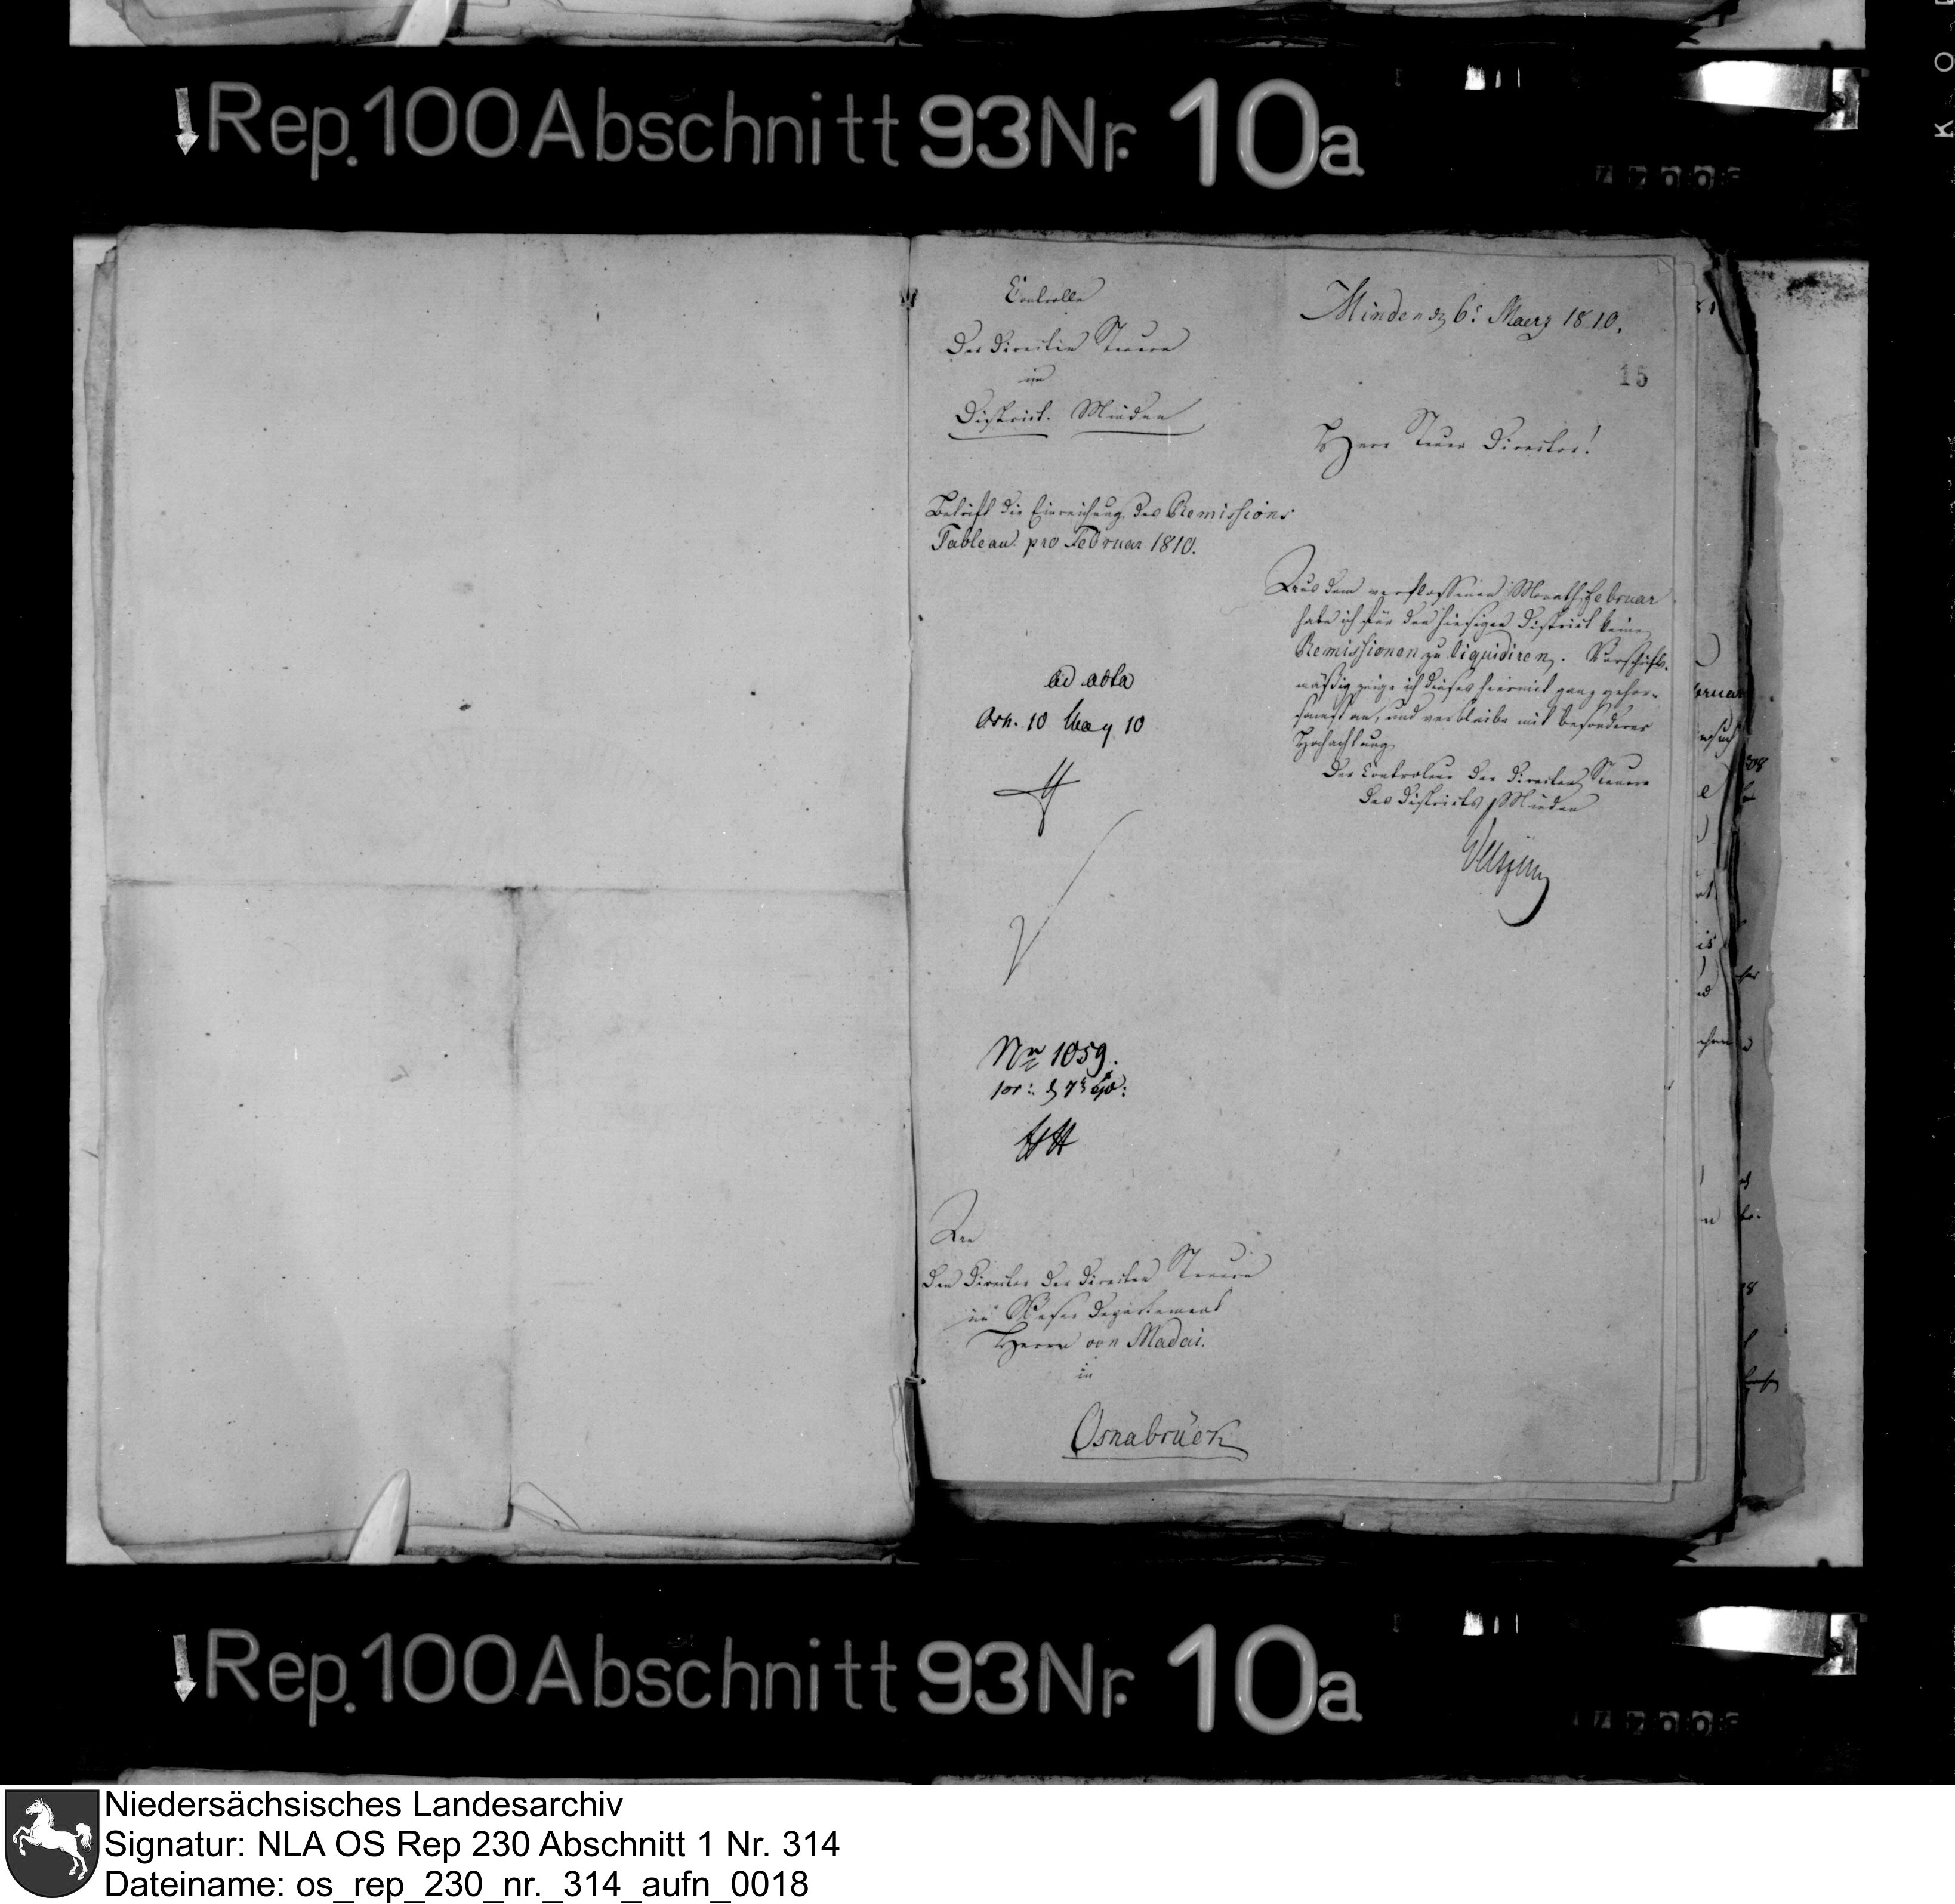 Rep. 100 Abschnitt 93 Nr. 10a
Controlle
Der directen Steuern
im
District. Minden
Minden dn 6t Maerz 1810.
15
Herr Steuer Director!
Betrift die Einreichung des Remissions
Tableau. pro Februar 1810.
Aus dem verflossenen Monath Februar
habe ich für den hiesigen District keine
Remissionen zu liquidiren. Vorschrifts-
mäßig zeige ich dieses hiermit ganz gehor-
samst an, und verbleibe mit besonderer
Hochachtung
Der Controleur der directen Steuern
des Districts Minden
ad acta
Osn. 10 März 10
Nro 1059.
An
Den Director der directen Steuern
im Weser Departement
Herrn von Madai.
in
Osnabrück
Rep. 100 Abschnitt 93 Nr. 10a
Niedersächsisches Landesarchiv
Signatur: NLA OS Rep 230 Abschnitt 1 Nr. 314
Dateiname: os_rep_230_nr._314_aufn_0018